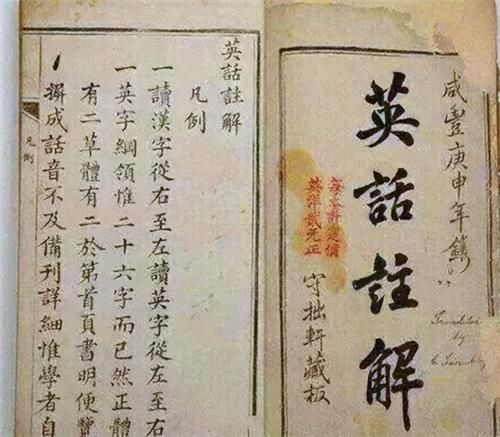 咸豐庚申年鐫
Translated
by
英話註解
守拙軒藏板
每本計定價
英洋貳元正
英話註解
凡例
一讀漢字從右至左讀英字從左至右
一英字綱領惟二十六字而已然正體
有二草體有二於第首頁書明便覽
一撰成話音不及備刊詳細惟學者自
凡例